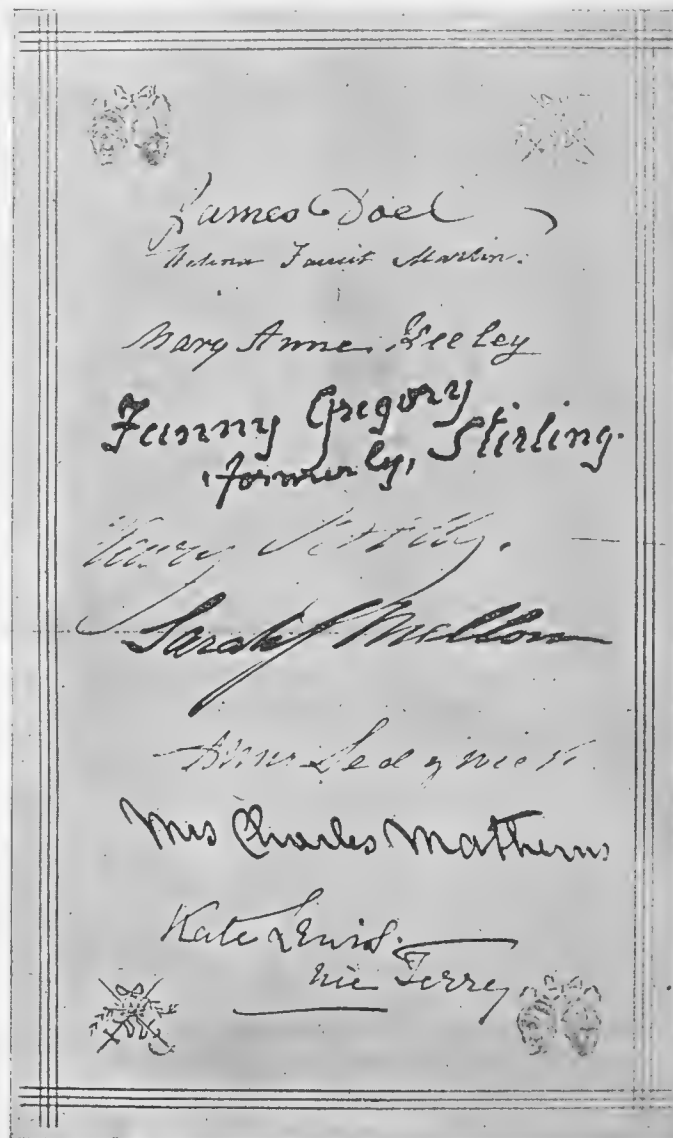 James Doel
Helena Faucit Martin.
Mary Anne Keeley
Fanny Gregory
formerly, Stirling.
Sarah J Mellon
Anne Sedgwick.
Mrs Charles Mathews
Kate Lewis.
née Terry